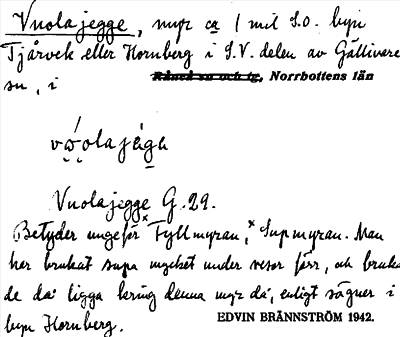 Vuolajegge, myr ca 1 mil S.O. byn
Tjårvek eller Hornberg i S.V. delen av Gällivare
sn, i Råneå sn och tg, Norrbottens län
Vuolajegge G. 29.
Betyder ungefär ˣFyllmyran, ˣSupmyran. Man
har brukat supa mycket under resor förr, och bruka-
de då ligga kring denna myr då, enligt sägner i
byn Hornberg.
EDVIN BRÄNNSTRÖM 1942.